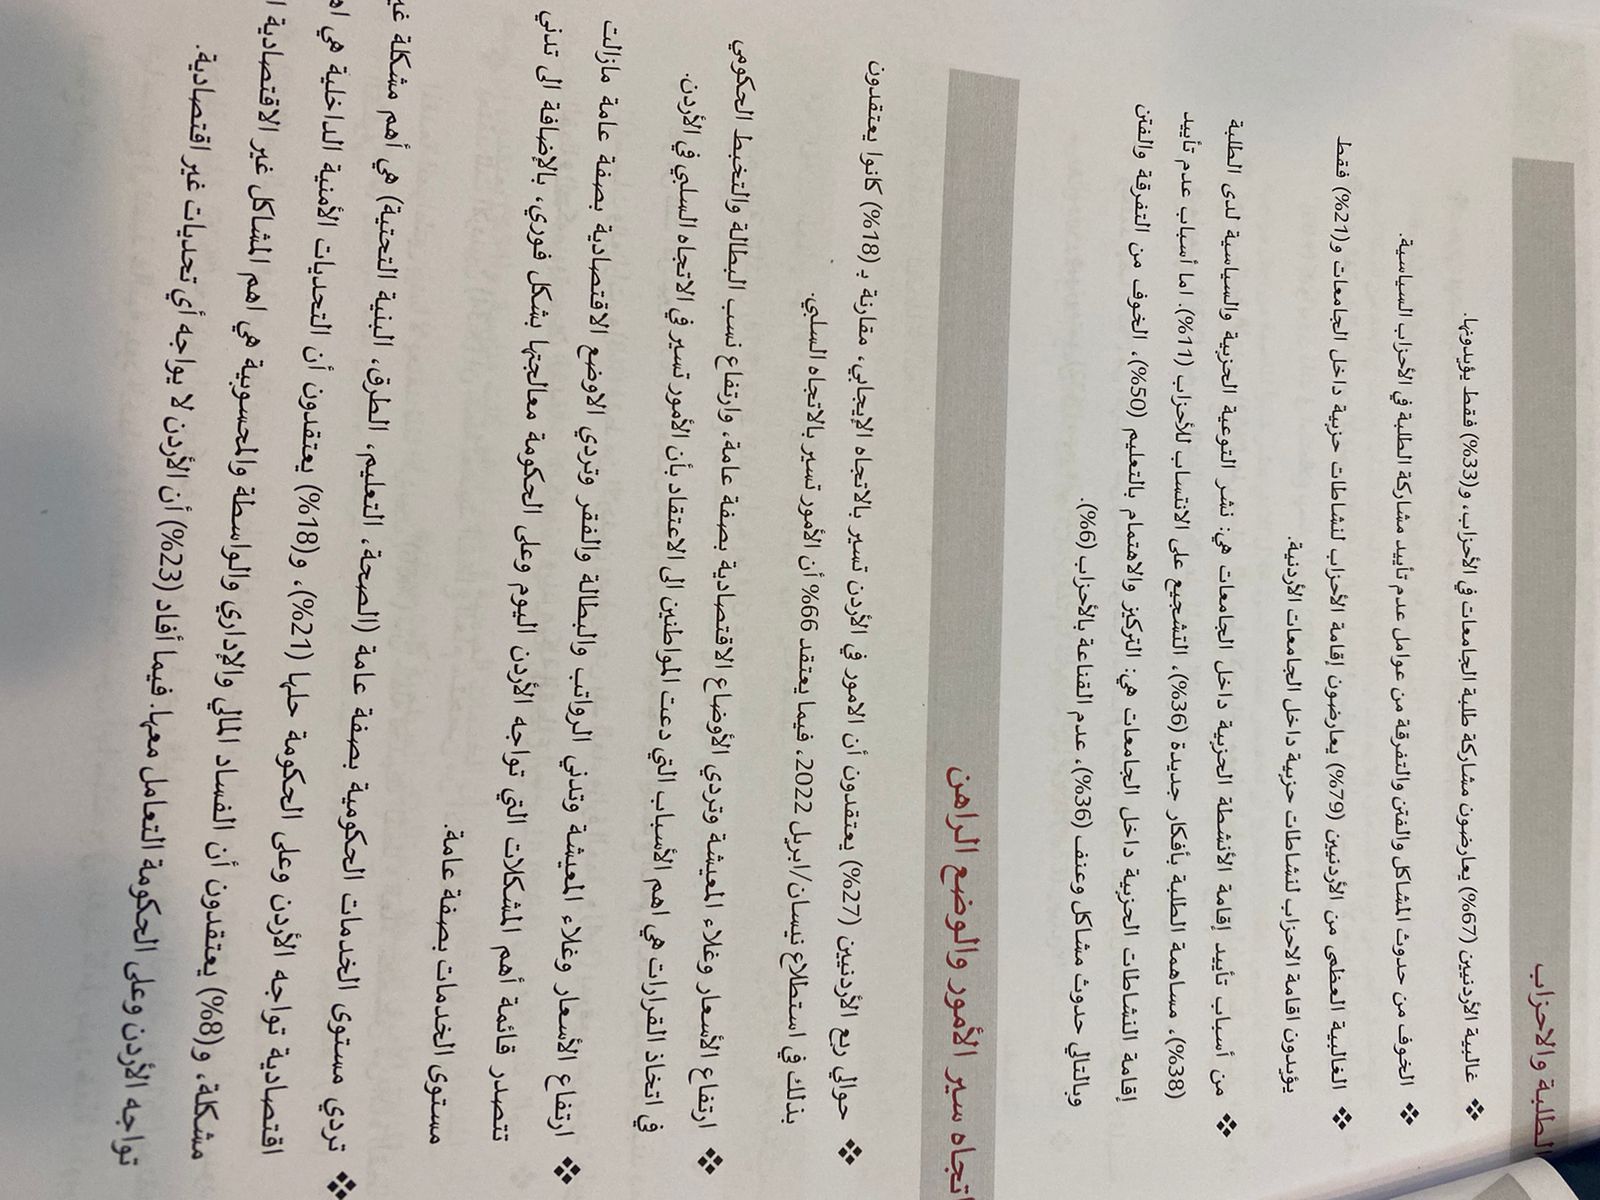 الطلبة والاحزاب
❖ غالبية الأردنيين (67%) يعارضون مشاركة طلبة الجامعات في الأحزاب، و(33%) فقط يؤيدونها.
❖ الخوف من حدوث المشاكل والفتن والتفرقة من عوامل عدم تأييد مشاركة الطلبة في الأحزاب السياسية.
❖ الغالبية العظمى من الأردنيين (79%) يعارضون إقامة الأحزاب لنشاطات حزبية داخل الجامعات و(21%) فقط
يؤيدون اقامة الاحزاب لنشاطات حزبية داخل الجامعات الأردنية.
❖ من أسباب تأييد إقامة الأنشطة الحزبية داخل الجامعات هي: نشر التوعية الحزبية والسياسية لدى الطلبة
(38%)، مساهمة الطلبة بأفكار جديدة (36%)، التشجيع على الانتساب للأحزاب (11%). اما أسباب عدم تأييد
إقامة النشاطات الحزبية داخل الجامعات هي: التركيز والاهتمام بالتعليم (50%)، الخوف من التفرقة والفتن
وبالتالي حدوث مشاكل وعنف (36%)، عدم القناعة بالأحزاب (6%).
اتجاه سير الأمور والوضع الراهن
❖ حوالي ربع الأردنيين (27%) يعتقدون أن الامور في الأردن تسير بالاتجاه الإيجابي، مقارنة بـ (18%) كانوا يعتقدون
بذلك في استطلاع نيسان/ابريل 2022، فيما يعتقد 66% أن الأمور تسير بالاتجاه السلبي.
❖ ارتفاع الأسعار وغلاء المعيشة وتردي الأوضاع الاقتصادية بصفة عامة، وارتفاع نسب البطالة والتخبط الحكومي
في اتخاذ القرارات هي اهم الأسباب التي دعت المواطنين الى الاعتقاد بأن الأمور تسير في الاتجاه السلبي في الأردن.
❖ ارتفاع الأسعار وغلاء المعيشة وتدني الرواتب والبطالة والفقر وتردي الاوضع الاقتصادية بصفة عامة مازالت
تتصدر قائمة أهم المشكلات التي تواجه الأردن اليوم وعلى الحكومة معالجتها بشكل فوري، بالإضافة الى تدني
مستوى الخدمات بصفة عامة.
❖ تردي مستوى الخدمات الحكومية بصفة عامة (الصحة، التعليم، الطرق، البنية التحتية) هي أهم مشكلة
اقتصادية تواجه الأردن وعلى الحكومة حلها (21%)، و(18%) يعتقدون أن التحديات الأمنية الداخلية هي
مشكلة، و(8%) يعتقدون أن الفساد المالي والإداري والواسطة والمحسوبية هي اهم المشاكل غير الاقتصادية
تواجه الأردن وعلى الحكومة التعامل معها. فيما أفاد (23%) أن الأردن لا يواجه أي تحديات غير اقتصادية.